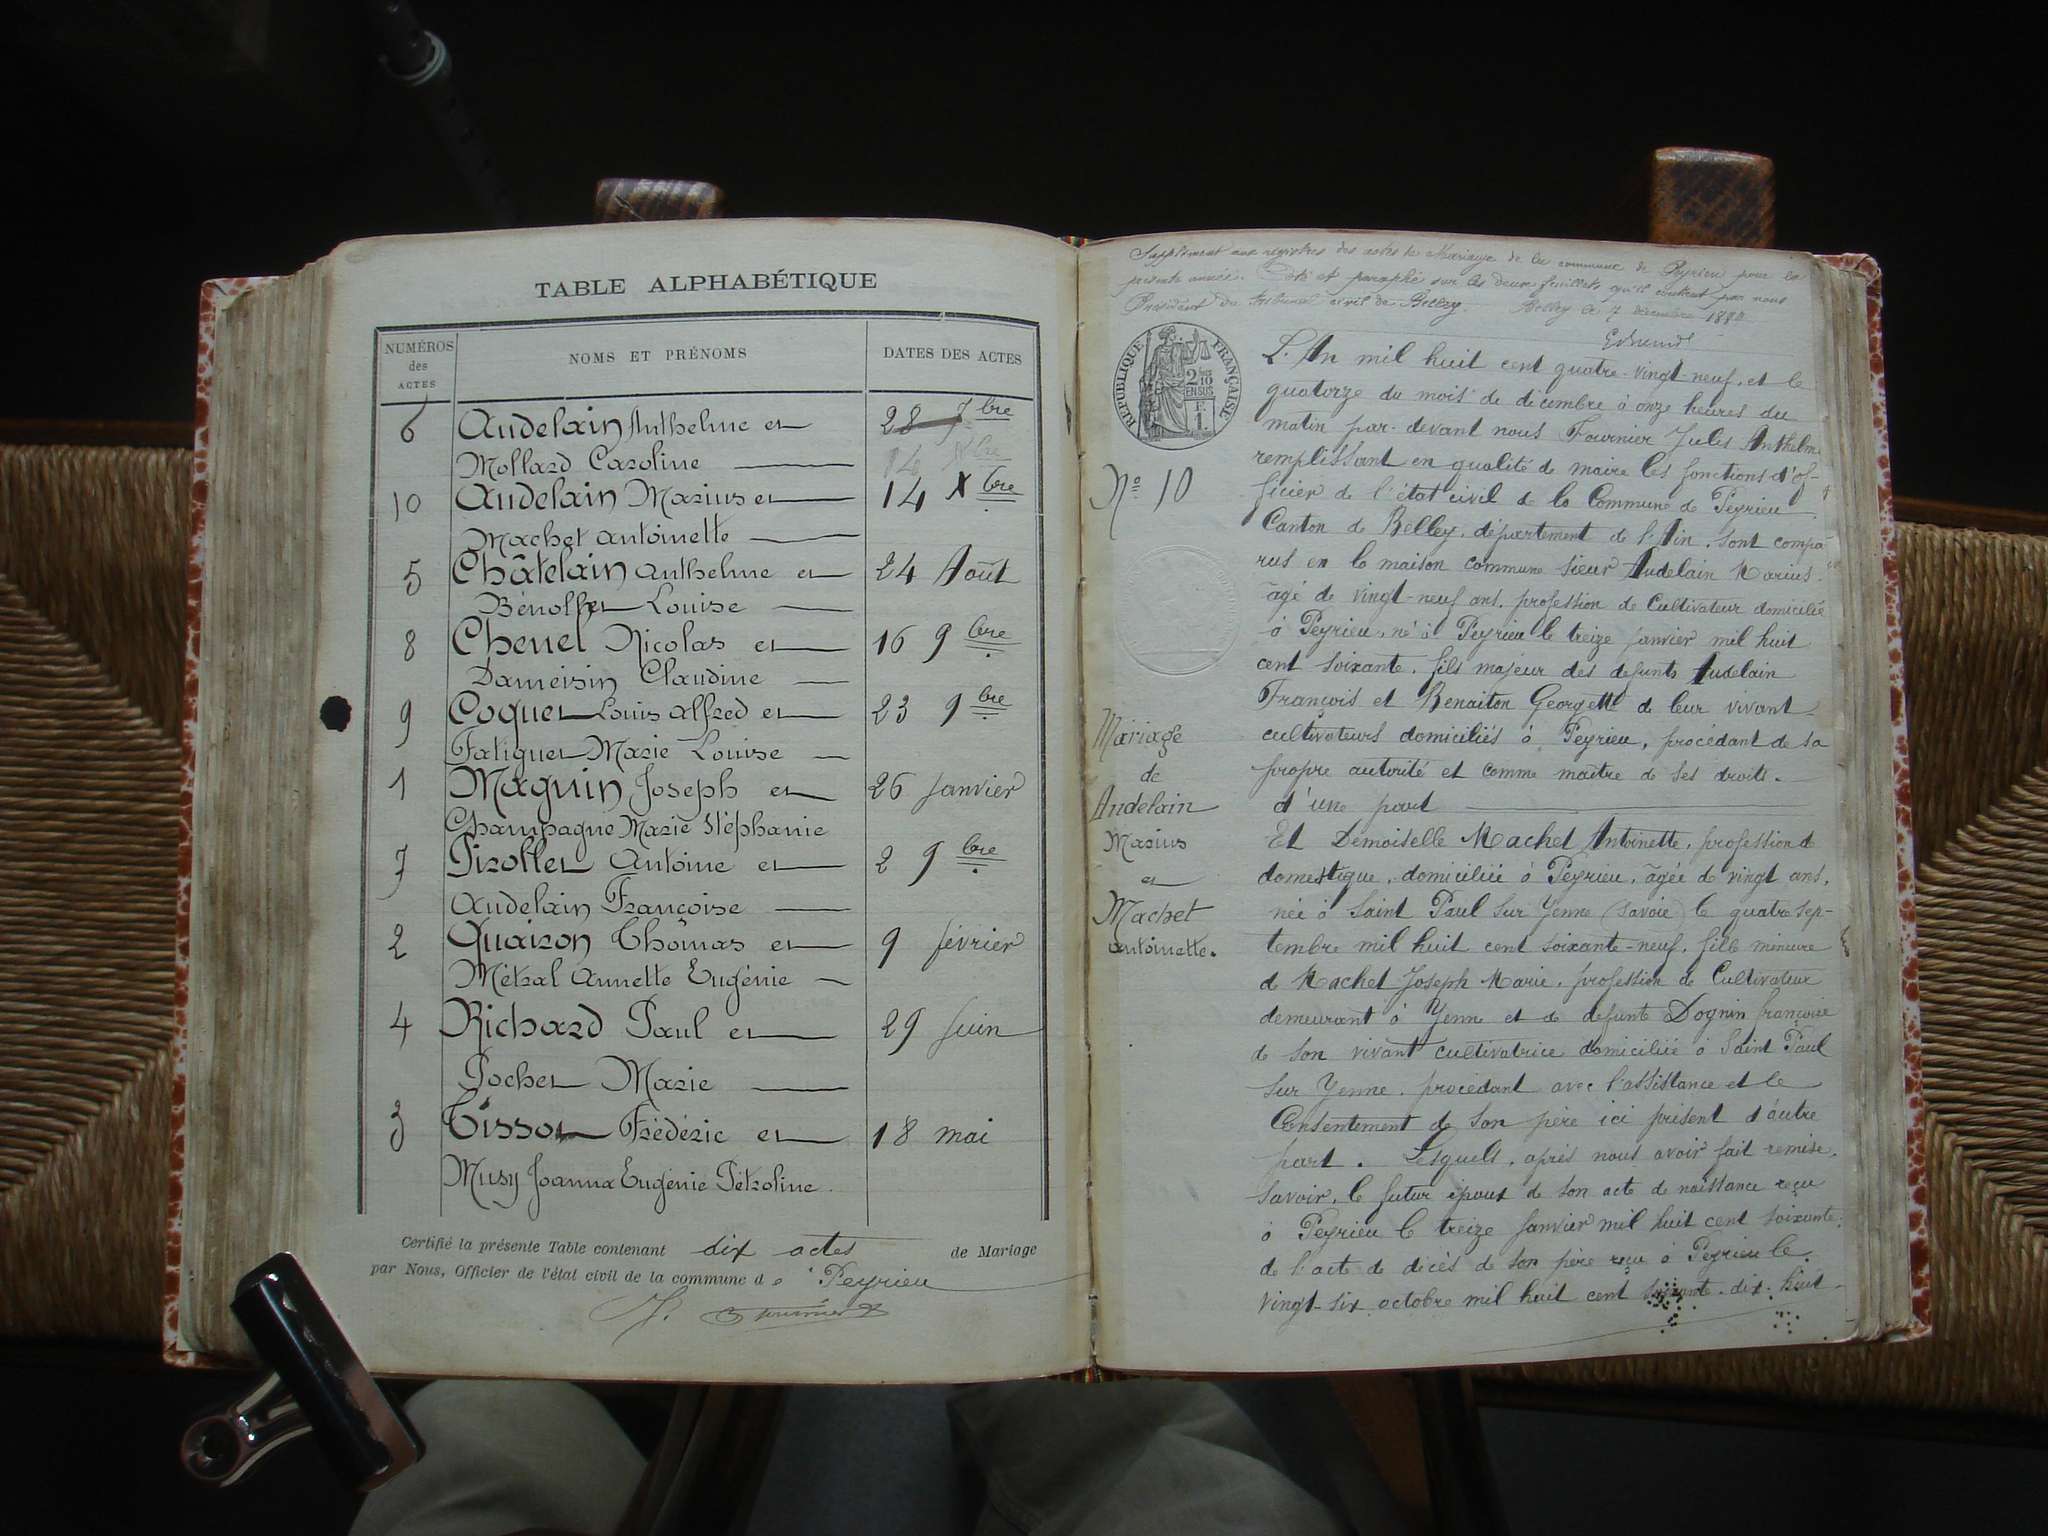 TABLE ALPHABÉTIQUE
NUMÉROS
des
ACTES
NOMS ET PRÉNOMS
DATES DES ACTES
6 Audelain Anthelme et 28 7bre
Mollard Caroline 14 Xbre
10 Audelain Marius et 14 Xbre
Machet Antoinette
5 Châtelain Anthelme et 24 Août
Louise
8 Chenel Nicolas et 16 9bre
Dameisin Claudine
9 Coquet Louis Alfred et 23 9bre
Fatiguet Marie Louise
1 Maguin Joseph et 26 janvier
Champagne Marie Stéphanie
7 Pirollet Antoine et 2 9bre
Audelain Françoise
2 Quaison Thômas et 9 février
Métral Annette Eugénie
4 Richard Paul et 29 Juin
Pochet Marie
3 Tissot Frédéric et 18 mai
Musy Joanna Eugénie Pétroline
Certifié la présente Table contenant dix actes de Mariage
par Nous, Officier de l'état civil de la commune de Peyrieu
J. Fournier
Supplément aux registres des actes de Mariage de la commune de Peyrieu pour la
présente année. Coté et paraphé sur les deux feuillets qu'il contient par nous
Président du tribunal civil de Belley. Belley le 7 décembre 1889
RÉPUBLIQUE FRANÇAISE
2/10
EN SUS
1 F.
L'An mil huit cent quatre-vingt-neuf, et le
quatorze du mois de décembre à onze heures du
matin par-devant nous Fournier Jules Anthelme
remplissant en qualité de maire les fonctions d'of-
No 10
ficier de l'état civil de la Commune de Peyrieu
Canton de Belley, département de l'Ain, sont compa-
rus en la maison commune sieur Audelain Marius
âgé de vingt-neuf ans, profession de Cultivateur domicilié
à Peyrieu, né à Peyrieu le treize janvier mil huit
cent soixante, fils majeur des defunts Audelain
François et Benaiton Georgette de leur vivant
cultivateurs domiciliés à Peyrieu, procédant de sa
propre autorité et comme maître de ses droits.
d'une part
Mariage
de
Audelain
Marius
et
Machet
Antoinette.
Et Demoiselle Machet Antoinette, profession de
domestique, domiciliée à Peyrieu, âgée de vingt ans,
née à Saint Paul sur Yenne (Savoie) le quatre sep-
tembre mil huit cent soixante-neuf, fille mineure
de Machet Joseph Marie, profession de Cultivateur
demeurant à Yenne et de defunte Dognin françoise
de son vivant cultivatrice domiciliée à Saint Paul
sur Yenne, procédant avec l'assistance et le
Consentement de son père ici présent d'autre
part. Lesquels, après nous avoir fait remise,
savoir, le futur époux de son acte de naissance reçu
à Peyrieu le treize janvier mil huit cent soixante;
de l'acte de décès de son père reçu à Peyrieu le
vingt-six octobre mil huit cent soixante-dix-huit